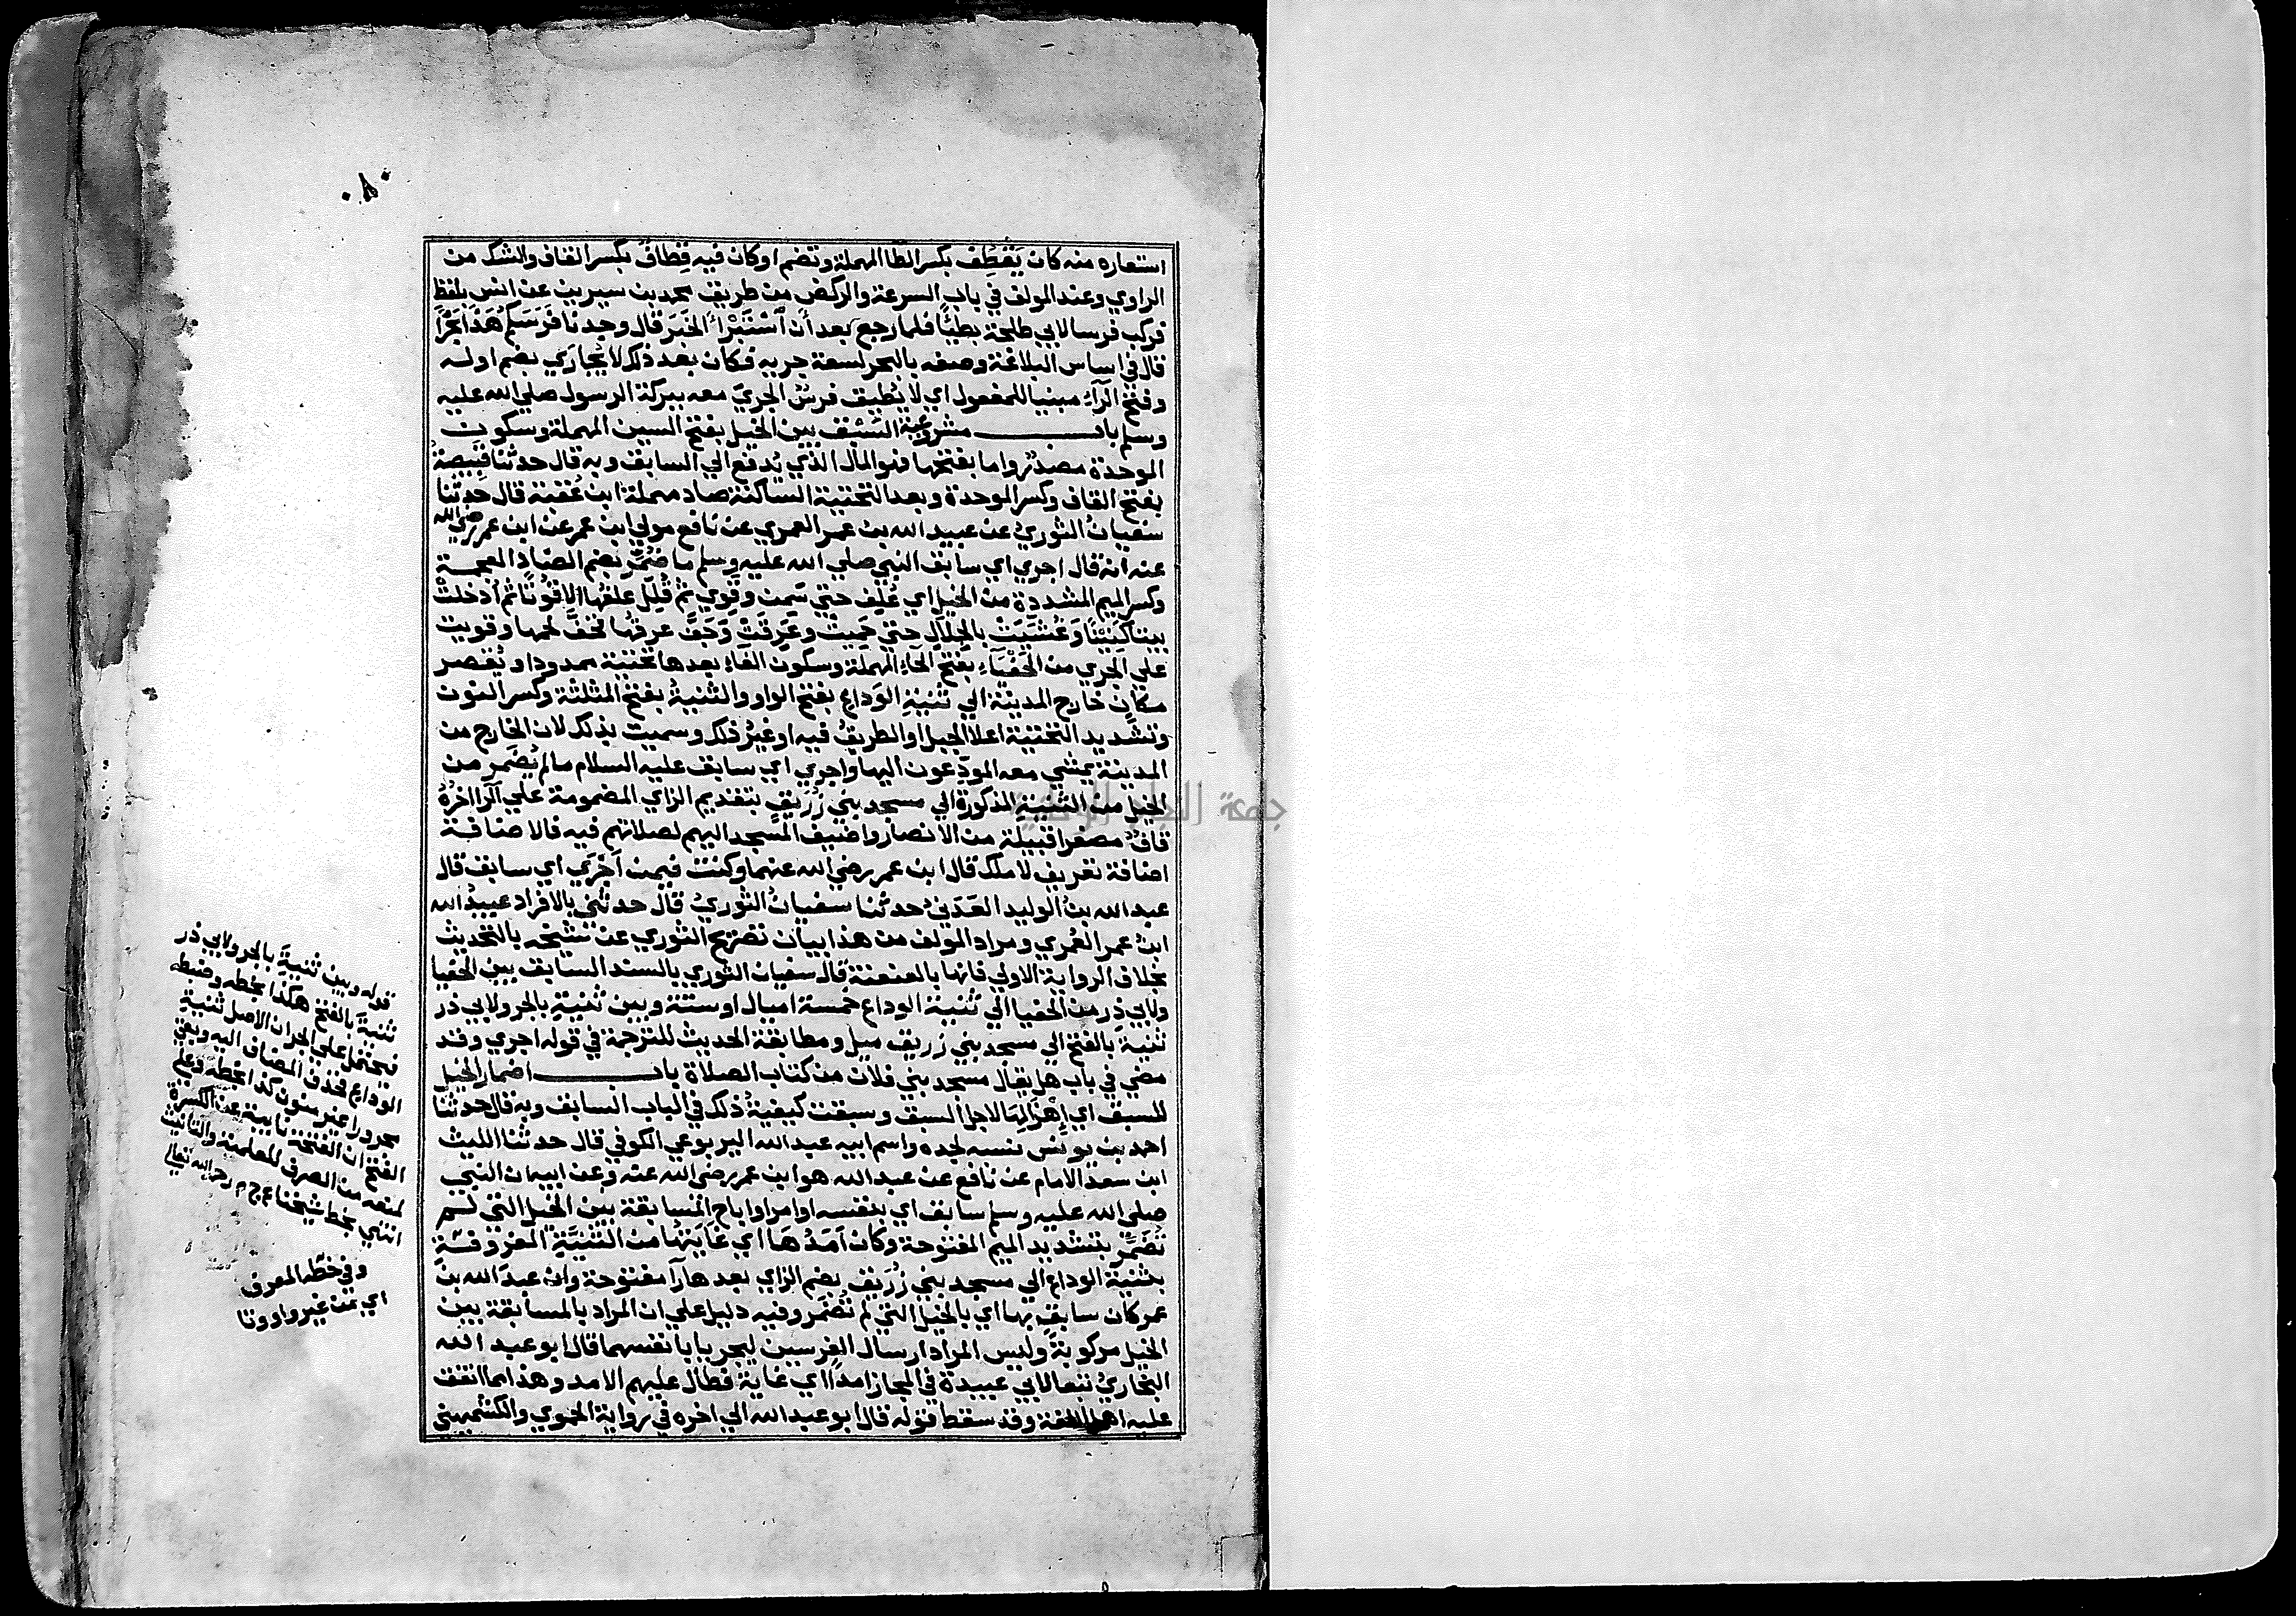 استعاره منه كان يَقطِف بكسر الطا المهملة وتضم او كان فيه قِطافٌ بكسر القاف والشك من
الراوي وعند المولف في باب السرعة والركض من طريق محمد بن سيرين عن انس بلفظ
فركب فرسا لابي طلحة بطيئًا فلما رجع بعد أن اسْتَبْرَأ الخبَرَ قال وجدنا فرَسَكم هَذا بحْرًا
قال في اساس البلاغة وصفه بالبحر لسعة جريه فكان بعد ذلك لا يُجارَي بضم اوله
وفتح الرآء مبنيا للمفعول اي لا يُطيق فرسٌ الجريَ معه ببركة الرسول صلي الله عليه
وسلم باب مشروعية السَّبْق بين الخيل بفتح السين المهملة وسكون
الموحدة مصدرٌ واما بفتحها فهو المال الذي يُدفع الي السابق وبه قال حدثنا قَبِيصةُ
بفتح القاف وكسر الموحدة وبعد التحتية الساكنة صاد مهملة ابن عُقبة قال حدثنا
سفيانُ الثوريُ عن عبيد الله بن عمر العمري عن نافع مولي ابن عمر عن ابن عمر رضي الله
عنه انه قال اجري اي سابق النبي صلي الله عليه وسلم ما ضُمِّرَ بضم الضاد المعجمة
وكسر الميم المشددة من الخيل اي عُلِف حتي سَمن وقَوِي ثم قُلِّلَ علفُها الا قُوتًا ثم أدخلتْ
بيتا كَنِينًا وَغُشِّيَتْ بالجِلالِ حتي حَمِيتْ وعَرِقَتْ وَجَفَّ عرقُها فخفَّ لحمها وقويت
علي الجري من الحَفْيَآءِ بفتح الحآء المهملة وسكون الفاء بعدها تحتية ممدودا ويُقصر
مكانٍ خارج المدينة الي ثَنِيَةِ الوَداعِ بفتح الواو والثنيةُ بفتح المثلثة وكسر النون
وتشديد التحتية اعلا الجبل او الطريقُ فيه او غيرُ ذلك وسميت بذلك لان الخارج من
المدينة يمشي معه المودِّعون اليها واجري اي سابق عليه السلام ما لم يُضَمر من
الخيل من الثنية المذكورة الي مسجد بني زُرَيقٍ بتقديم الزاي المضمومة علي الرا اخرُهُ
قافٌ مصغرا قبيلة من الانصار واضيف المسجد اليهم لصلاتهم فيه فالاضافة
اضافة تعريف لا ملك قال ابن عمر رضي الله عنهما وكنت فيمن اجْرَي اي سابق قال
عبد الله بنُ الوليد العَدَنيُ حدثنا سفيانُ الثوريُ قال حدثني بالافراد عبيدُ الله
ابنُ عمر العُمري ومراد المولف من هذا بيان تصريح الثوري عن شيخه بالتحديث
بخلاف الرواية الاولي فانها بالعنعنة قال سفيان الثوري بالسند السابق بين الحفيا
ولابي ذر من الحفيا الي ثنية الوداع خمسة اميال او ستة وبين ثنيةِ بالجر ولابي ذر
ثنيةَ بالفتح الي مسجد بني زريق ميل ومطابقة الحديث للترجمة في قوله اجري وقد
مضي في باب هل يقال مسجد بني فلان من كتاب الصلاة باب اضمار الخيل
للسبق اي إِهْزَالِهَا لاجل السبق وسبقت كيفيةُ ذلك في الباب السابق وبه قال حدثنا
احمد بن يونس نسبه لجده واسم ابيه عبد الله اليربوعي الكوفي قال حدثنا الليث
ابن سعد الامام عن نافع عن عبد الله هو ابن عمر رضي الله عنه وعن ابيه ان النبي
صلي الله عليه وسلم سابق اي بنفسه او امر او اباح المسابقة بين الخيل التي لم
تُضَمَّر بتشديد الميم المفتوحة وكان أمَدُهَا اي غَايَتُها من الثَنِيَّة المعروفة
بثنية الوداع الي مسجد بني زُرَيق بضم الزاي بعدها رآ مفتوحة وان عبدَ الله بنَ
عمر كان سابق بها اي بالخيل التي لم تُضَمَّر وفيه دليل علي ان المراد بالمسابقة بين
الخيل مركوبةً وليس المراد ارسال الفرسين ليجريا بانفسهما قال ابو عبد الله
البخاريُ تبعا لابي عبيدة في المجاز امدًا اي غاية فطال عليهم الامد وهذا مما اتفق
عليه اهل اللغة وقد سقط قوله قال ابو عبد الله الي اخره في رواية الحموي والكشميهني
قوله وبين ثنيةِ بالجر ولابي ذر
ثنيةَ بالفتح هكذا بخطه وضبطه
فيحتمل علي الجر ان الاصل ثنية
الوداع فحذف المضاف اليه وبقي
مجرورا غير منون كذا بخطه وعلم
الفتح ان الفتحة نايبة عن الكسرة
لمنعه من الصرف للعلمية والتانيث
انتهي بخط شيخنا ع ج م رحمه الله تعالي
وفي خطّه المعرف
اي من غير واو وتا